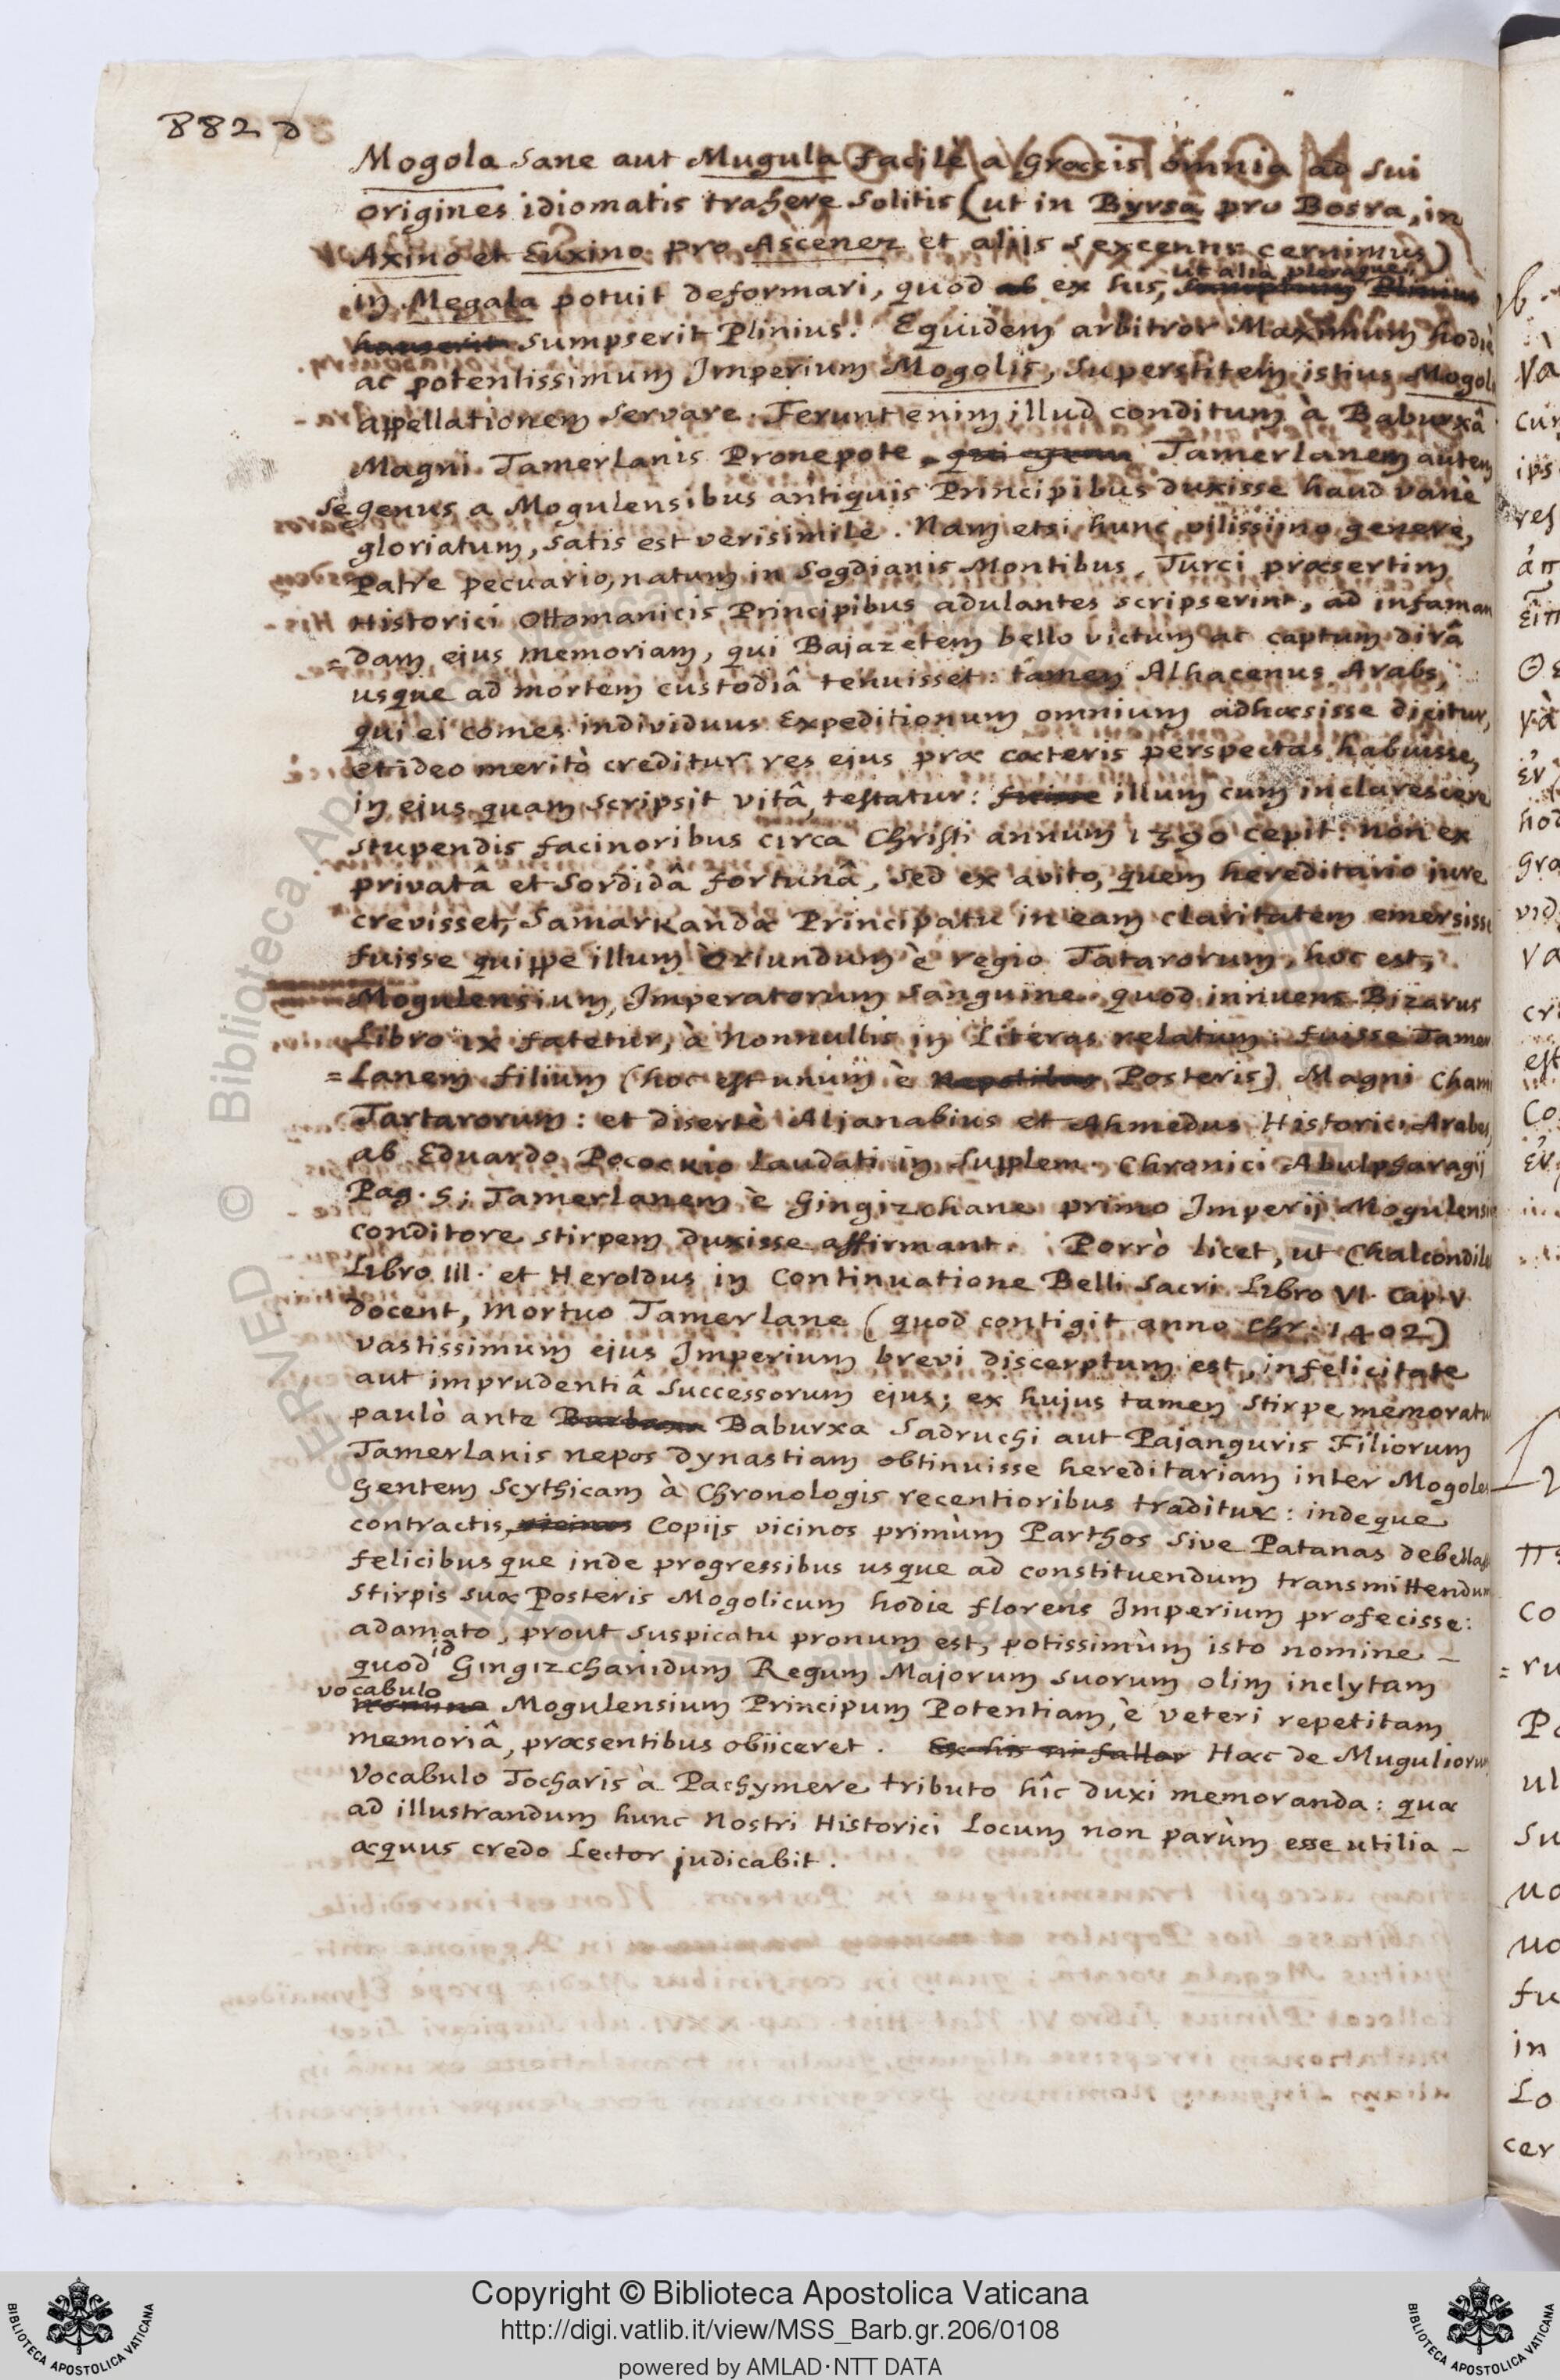 882 d
Mogola sane aut Mugula facilè a Græcis omnia ad sui
origines idiomatis trahere solitis (ut in Byrsa pro Bosra, in
Axino et Euxino pro Ascenez et aliis sexcentis cernimus)
in Megala potuit deformari, quod ab ex his, ut alia pleraque,
sumpserit Plinius. Equidem arbitror Maximum hodiè
ac potentissimum Imperium Mogolis, superstitem istius Mogol
appellationem servare. Ferunt enim illud conditum à Baburxâ
Magni Tamerlanis Pronepote. Tamerlanem autem
se genus a Mogulensibus antiquis Principibus duxisse haud vanè
gloriatum, satis est verisimile. Nam etsi hunc vilissimo genere,
Patre pecuario, natum in Sogdianis Montibus, Turci præsertim
Historici Ottomanicis Principibus adulantes scripserint, ad infaman
=dam ejus memoriam, qui Bajazetem bello victum ac captum dirâ
usque ad mortem custodiâ tenuisset: tamen Alhacenus Arabs,
qui ei comes individuus Expeditionum omnium adhæsisse dicitur,
et ideo meritò creditur res ejus præ cæteris perspectas habuisse,
in ejus quam scripsit vitâ, testatur: fuisse illum cum inclarescere
stupendis facinoribus circa Christi annum 1390 cepit: non ex
privatâ et sordidâ fortunâ, sed ex avito, quem hereditario jure
crevisset, Samarkandæ Principatu in eam claritatem emersisse
fuisse quippe illum oriundum è regio Tatarorum, hoc est,
Mogulensium, Imperatorum sanguine. quod innuens Bizarus
Libro IX fatetur, à Nonnullis in Literas relatum: fuisse Tamer
=lanem filium (hoc est unum è Nepotibus Posteris) Magni Chami
Tartarorum: et disertè Aljanabius et Ahmedus Historici Arabes,
ab Eduardo Pocockio laudati in Supplem. Chronici Abulpharagij
Pag. 5; Tamerlanem è Gingizchane primo Imperij Mogulensis
conditore stirpem duxisse affirmant. Porrò licet, ut Chalcondiles
Libro III. et Heroldus in Continuatione Belli Sacri Libro VI. Cap. V
docent, Mortuo Tamerlane (quod contigit anno Chr. 1402)
vastissimum ejus Imperium brevi discerptum est, infelicitate
aut imprudentiâ successorum ejus; ex hujus tamen stirpe memoratu
paulò ante Baburxa Sadruchi aut Pajanguris Filiorum
Tamerlanis nepos dynastiam obtinuisse hereditariam inter Mogoles
Gentem Scythicam à Chronologis recentioribus traditur: indeque
contractis, vicinas Copijs vicinos primùm Parthos sive Patanas debella
felicibusque inde progressibus usque ad constituendum transmittendum
stirpis suæ Posteris Mogolicum hodie florens Imperium profecisse:
adamato, prout suspicatu pronum est, potissimùm isto nomine –
quod id Gingizchanidum Regum Majorum suorum olim inclytam
vocabulo
nomine Mogulensium Principum Potentiam, è veteri repetitam
memoriâ, præsentibus obijceret. Ex his ni fallor Hæc de Muguliorum
Vocabulo Tocharis à Pachymere tributo hîc duxi memoranda: quæ
ad illustrandum hunc Nostri Historici Locum non parùm esse utilia –
æquus credo Lector judicabit.
Copyright © Biblioteca Apostolica Vaticana
http://digi.vatlib.it/view/MSS_Barb.gr.206/0108
powered by AMLAD·NTT DATA
BIBLIOTECA APOSTOLICA VATICANA
BIBLIOTECA APOSTOLICA VATICANA